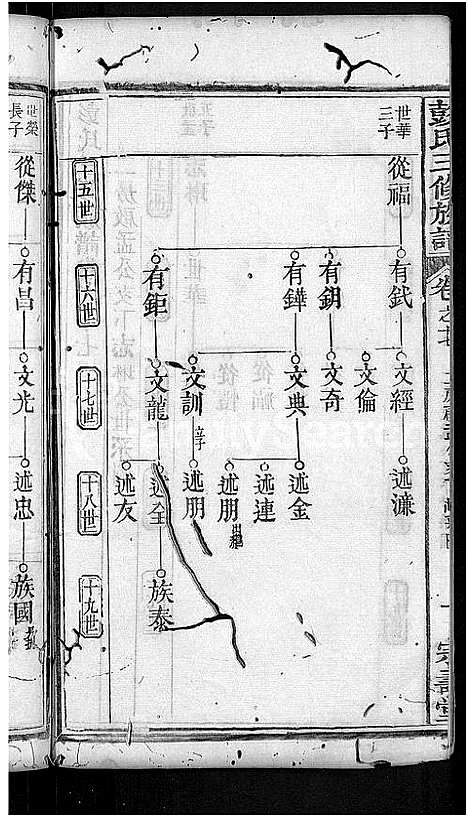 彭氏三修族譜
卷之
宗壽堂
世華三子
十五世
從福
十六世
有釴
有鈅
有鏵
有鉅
十七世
文經
文倫
文奇
文典
文訓
文龍
十八世
述濂
述金
述連
述朋 出繼
述朋
述全
述友
十九世
族泰
世榮長子
從傑
有昌
文光
述忠
族國